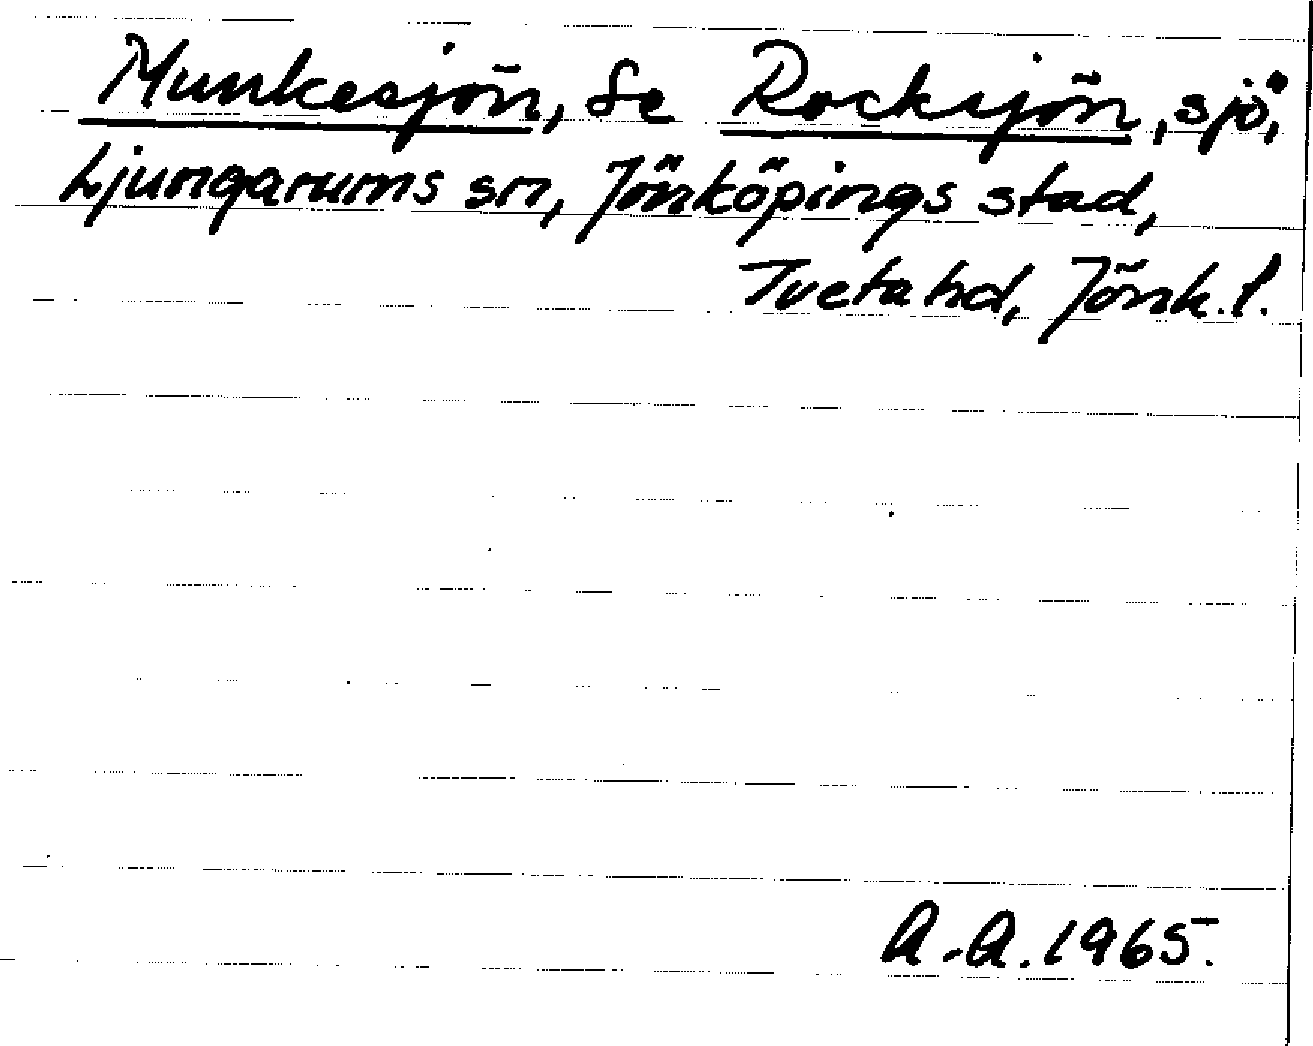 Munkesjön, Se Rocksjön, sjö,
Ljungarums sn, Jönköpings stad,
Tveta hd, Jönk. l.
A.-A. 1965.